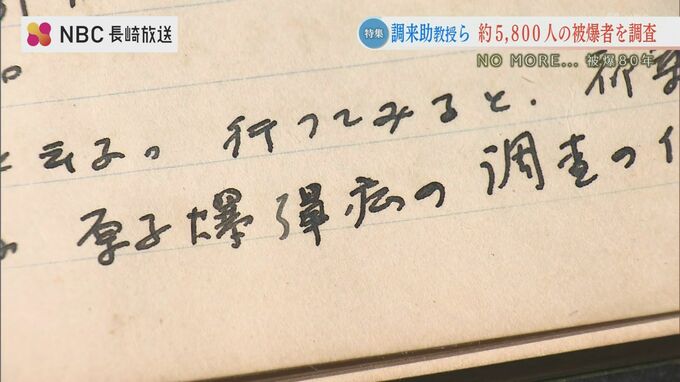 NBC 長崎放送
特集 調来助教授ら 約5,800人の被爆者を調査
NO MORE... 被爆80年
と云う。行つてみると、
原子爆弾病の調査の